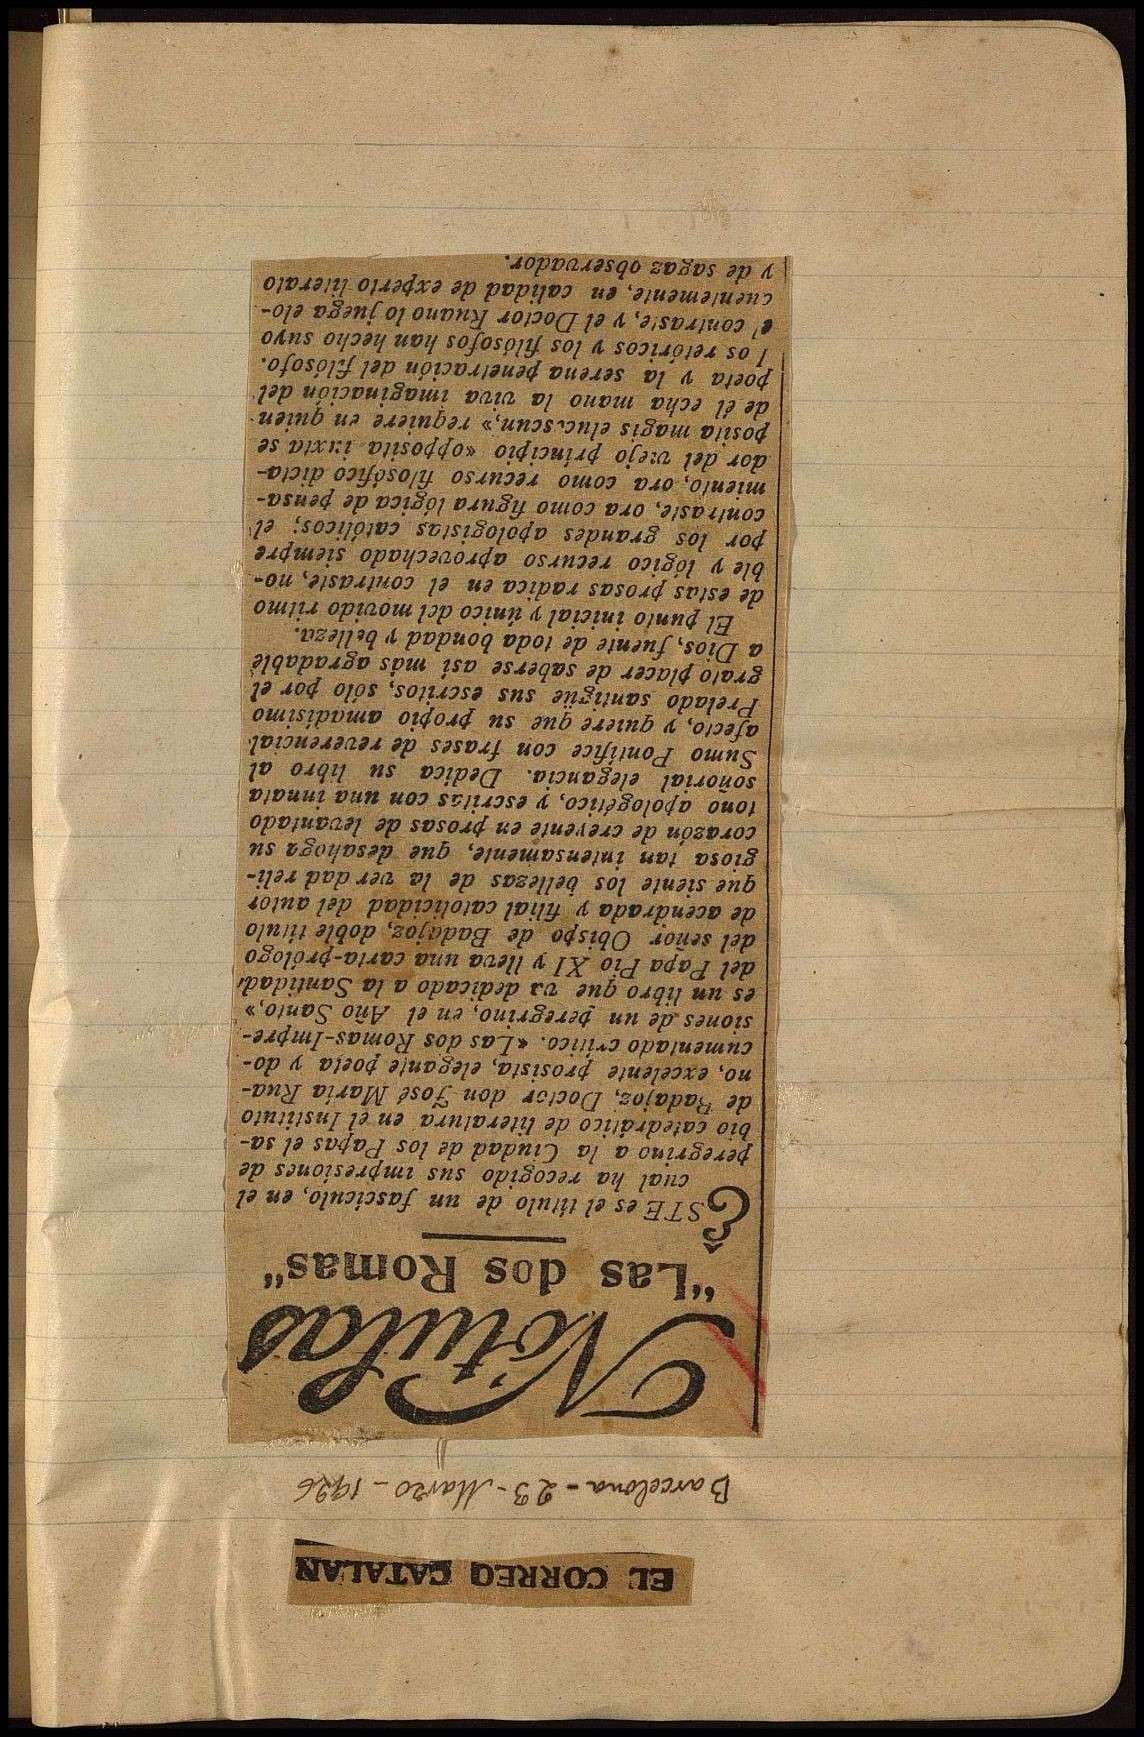 EL CORREO CATALAN
Barcelona - 23 - Marzo - 1926
Nótulas
"Las dos Romas"
ESTE es el título de un fascículo, en el
cual ha recogido sus impresiones de
peregrino a la Ciudad de los Papas el sa-
bio catedrático de literatura en el Instituto
de Badajoz, Doctor don José María Rua-
no, excelente prosista, elegante poeta y do-
cumentado crítico. «Las dos Romas-Impre-
siones de un peregrino, en el Año Santo,»
es un libro que va dedicado a la Santidad
del Papa Pío XI y lleva una carta-prólogo
del señor Obispo de Badajoz, doble título
de acendrada y filial catolicidad del autor
que siente los bellezas de la verdad reli-
giosa tan intensamente, que desahoga su
corazón de creyente en prosas de levantado
tono apologético, y escritas con una innata
soñorial elegancia. Dedica su libro al
Sumo Pontífice con frases de reverencial
afecto, y quiere que su propio amadísimo
Prelado santigüe sus escritos, sólo por el
grato placer de saberse así más agradable
a Dios, fuente de toda bondad y belleza.
El punto inicial y único del movido ritmo
de estas prosas radica en el contraste, no-
ble y lógico recurso aprovechado siempre
por los grandes apologistas católicos; el
contraste, ora como figura lógica de pensa-
miento, ora como recurso filosófico dicta-
dor del viejo principio «opposita iuxta se
posita magis elucescun,» requiere en quien
de él echa mano la viva imaginación del
poeta y la serena penetración del filósofo.
Los retóricos y los filósofos han hecho suyo
el contraste, y el Doctor Ruano lo juega elo-
cuentemente, en calidad de experto literato
y de sagaz observador.